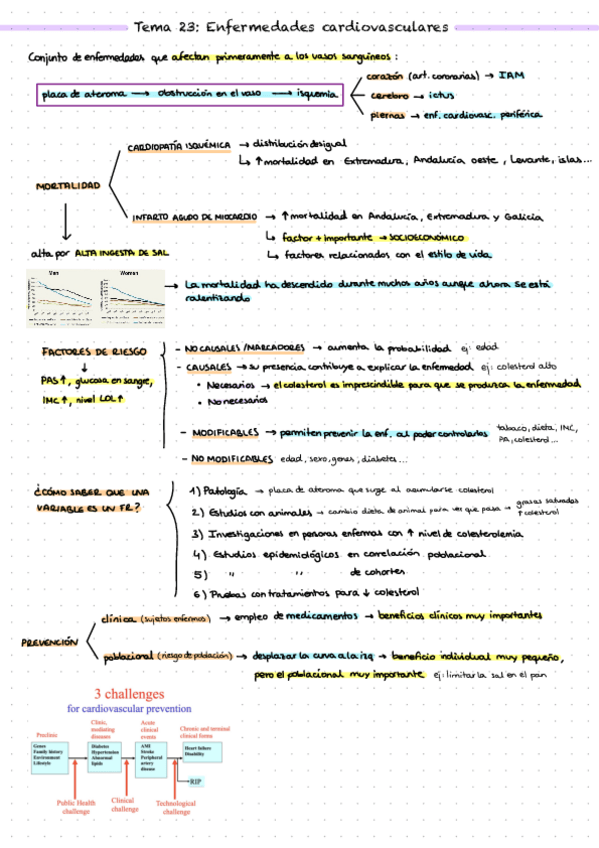 Tema 23: Enfermedades cardiovasculares
Conjunto de enfermedades que afectan primeramente a los vasos sanguíneos:
placa de ateroma → obstrucción en el vaso → isquemia
corazón (art. coronarias) → IAM
cerebro → ictus
piernas → enf. cardiovasc. periférica
MORTALIDAD
CARDIOPATÍA ISQUÉMICA → distribución desigual
↳ ↑ mortalidad en Extremadura, Andalucía oeste, Levante, islas...
INFARTO AGUDO DE MIOCARDIO → ↑ mortalidad en Andalucía, Extremadura y Galicia
↳ factor + importante → SOCIOECONÓMICO
↳ factores relacionados con el estilo de vida
alta por ALTA INGESTA DE SAL
Men
Women
→ La mortalidad ha descendido durante muchos años aunque ahora se está
ralentizando
FACTORES DE RIESGO
↓
PAS↑, glucosa en sangre,
IMC↑, nivel LDL↑
- NO CAUSALES/MARCADORES → aumenta la probabilidad ej: edad
- CAUSALES → su presencia contribuye a explicar la enfermedad ej: colesterol alto
• Necesarios → el colesterol es imprescindible para que se produzca la enfermedad
• No necesarios
- MODIFICABLES → permiten prevenir la enf. al poder controlarlos tabaco, dieta, IMC,
PA, colesterol...
- NO MODIFICABLES edad, sexo, genes, diabetes...
¿CÓMO SABER QUE UNA
VARIABLE ES UN FR?
1) Patología → placa de ateroma que surge al acumularse colesterol
2) Estudios con animales → cambio dieta de animal para ver que pasa → grasas saturadas
↑ colesterol
3) Investigaciones en personas enfermas con ↑ nivel de colesterolemia
4) Estudios epidemiológicos en correlación poblacional
5) " " de cohortes
6) Pruebas con tratamientos para ↓ colesterol
PREVENCIÓN
clínica (sujetos enfermos) → empleo de medicamentos → beneficios clínicos muy importantes
poblacional (riesgo de población) → desplazar la curva a la izq → beneficio individual muy pequeño,
pero el poblacional muy importante ej: limitar la sal en el pan
3 challenges
for cardiovascular prevention
Preclinic
Clinic,
mediating
diseases
Acute
clinical
events
Chronic and terminal
clinical forms
Genes
Family history
Environment
Lifestyle
Diabetes
Hypertension
Abnormal
lipids
AMI
Stroke
Peripheral
artery
disease
Heart failure
Disability
RIP
Public Health
challenge
Clinical
challenge
Technological
challenge